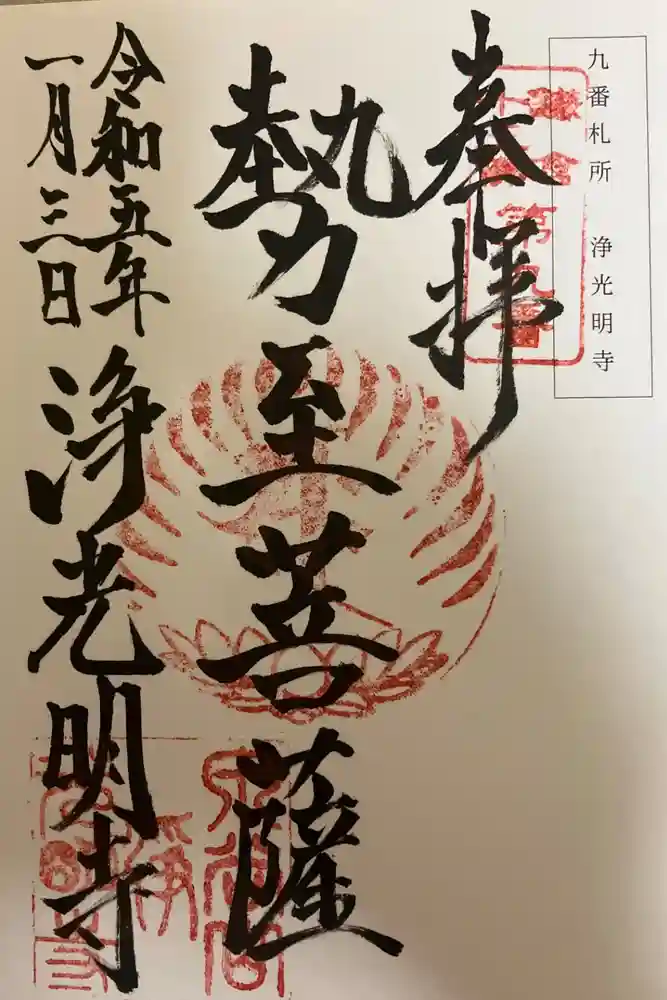 九番札所 浄光明寺
奉拝
第九番
勢至菩薩
令和五年
一月三日
浄光明寺